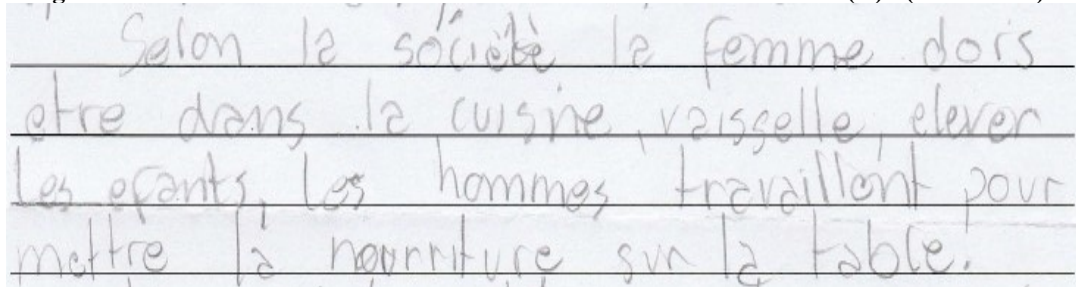 Selon la sociètè la femme dois
etre dans la cuisine, vaisselle, elever
les efants, les hommes travaillent pour
mettre la nourriture sur la table.